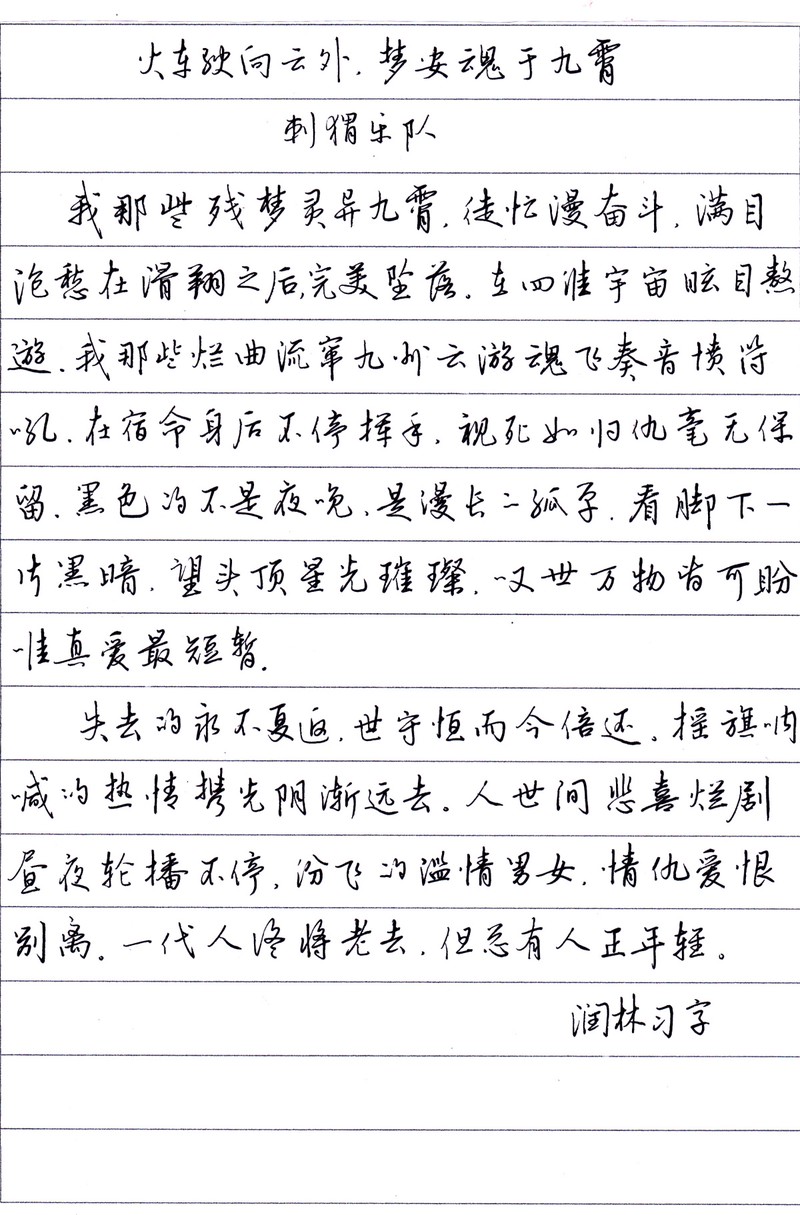 火车驶向云外，梦安魂于九霄
刺猬乐队
我那些残梦灵异九霄，徒忙漫奋斗，满目
沧愁在滑翔之后，完美坠落。在四维宇宙眩目熬
遊，我那些烂曲流窜九州云游魂飞奏音愤符
吼，在宿命身后不停挥手，视死如归仇毫无保
留，黑色的不是夜晚，是漫长的孤单，看脚下一
片黑暗，望头顶星光璀璨，叹世万物皆可盼
唯真爱最短暂，
失去的永不复返，世守恒而今倍还。摇旗呐
喊的热情携光阴渐远去。人世间悲喜烂剧
昼夜轮播不停，纷飞的滥情男女，情仇爱恨
别离。一代人终将老去，但总有人正年轻。
润林习字